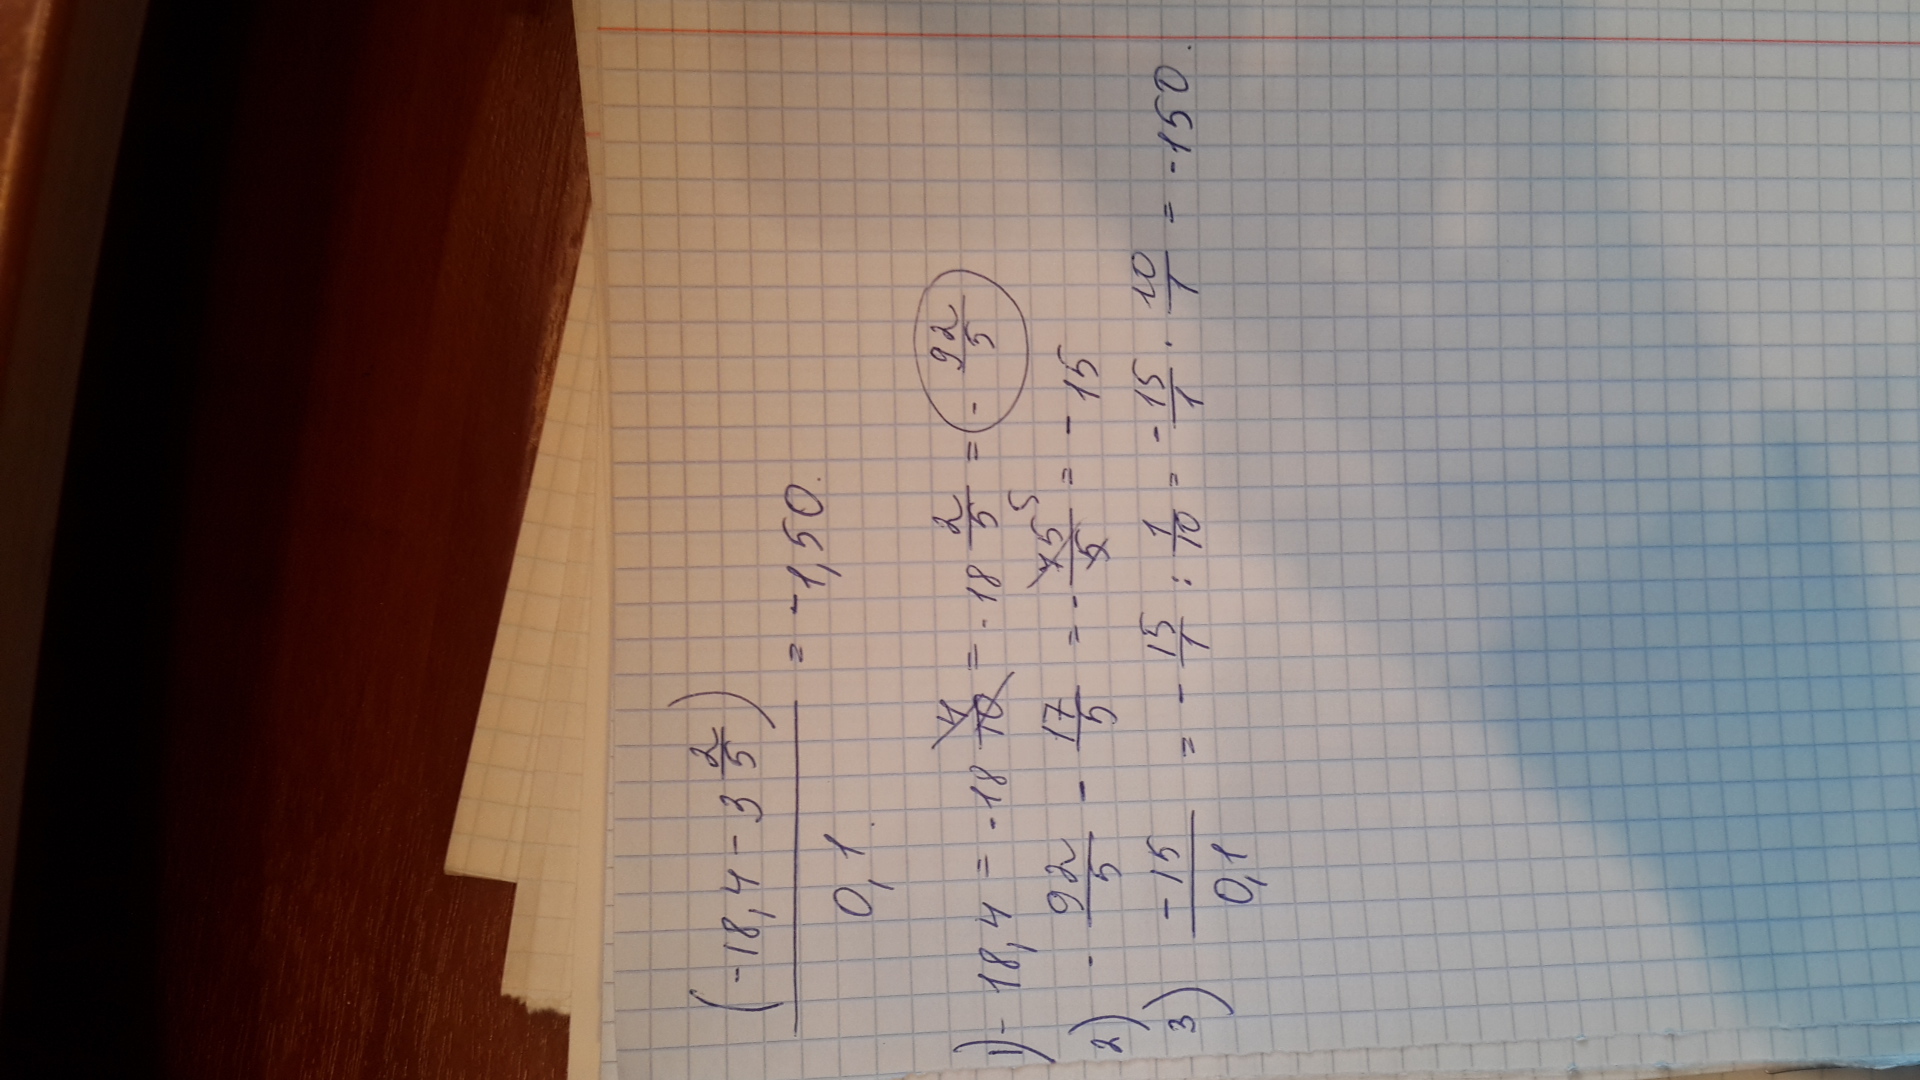 (-18,4 - 3 2/5) / 0,1 = -1,50.
1) - 18,4 = -18 4/10 = -18 2/5 = - 92/5
2) - 92/5 - 17/5 = - 75/5 5 = - 15
3) -15 / 0,1 = - 15/1 : 1/10 = - 15/1 · 10/1 = -150.